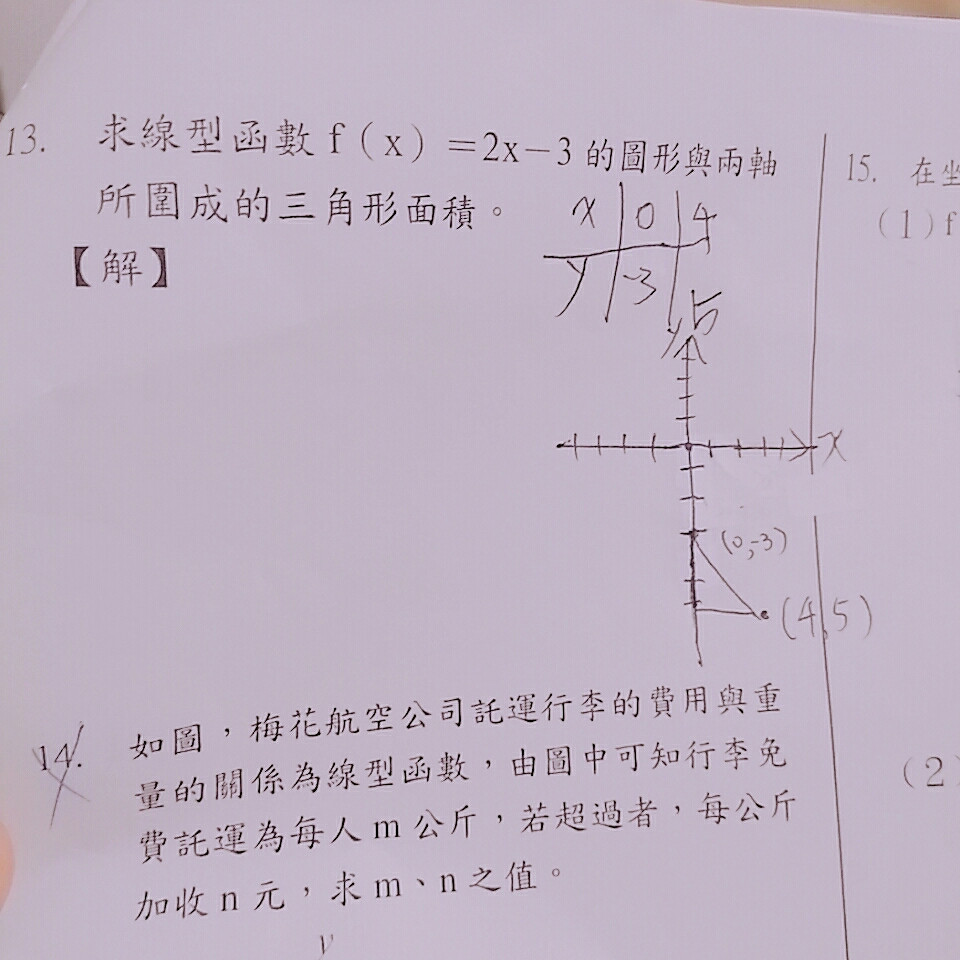 13. 求線型函數 f(x)=2x-3 的圖形與兩軸
所圍成的三角形面積。
【解】
x 0 4
y -3 5
y
x
(0,-3)
(4,5)
14. 如圖，梅花航空公司託運行李的費用與重
量的關係為線型函數，由圖中可知行李免
費託運為每人 m 公斤，若超過者，每公斤
加收 n 元，求 m、n 之值。
y
15. 在坐
(1) f
(2)